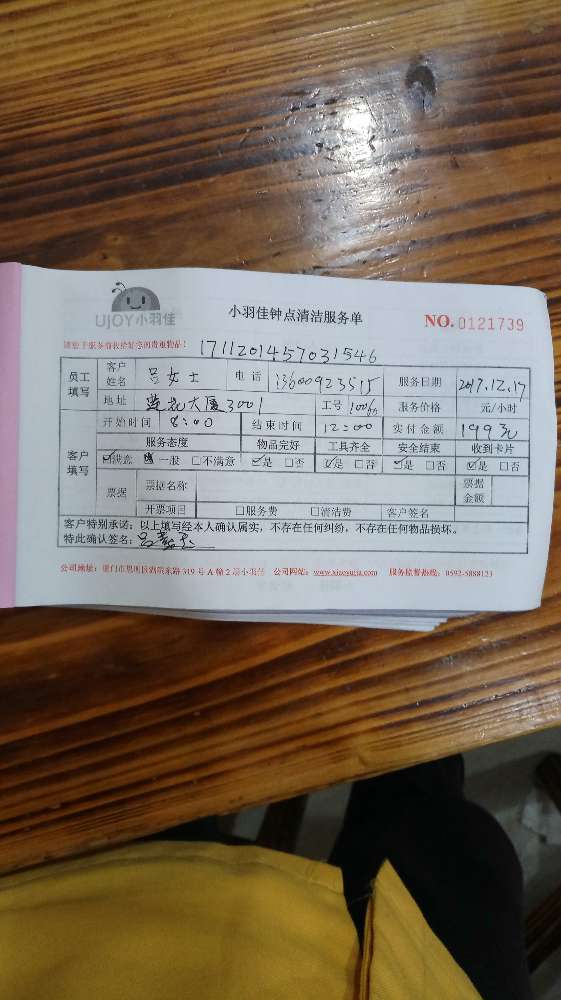 UJOY小羽佳
小羽佳钟点清洁服务单
NO. 0121739
1711201457031546
员工填写 客户姓名 吕女士 电话 13600923515 服务日期 2017.12.17
地址 莲花大厦3001 工号 服务价格 元/小时
客户填写 开始时间 8:00 结束时间 12:00 实付金额 199元
服务态度 物品完好 工具齐全 安全结束 收到卡片
☑满意 一般 □不满意 ☑是 □否 ☑是 □否 ☑是 □否 ☑是 □否
票据 票据名称 票据金额
开票项目 □服务费 □清洁费 客户签名
客户特别承诺：以上填写经本人确认属实，不存在任何纠纷，不存在任何物品损坏。
特此确认签名：吕
公司地址：厦门市思明区 东路 319 号 A 幢 2 层小羽佳 公司网站：www.xiaoyujia.com 服务监督热线：0592-5888123